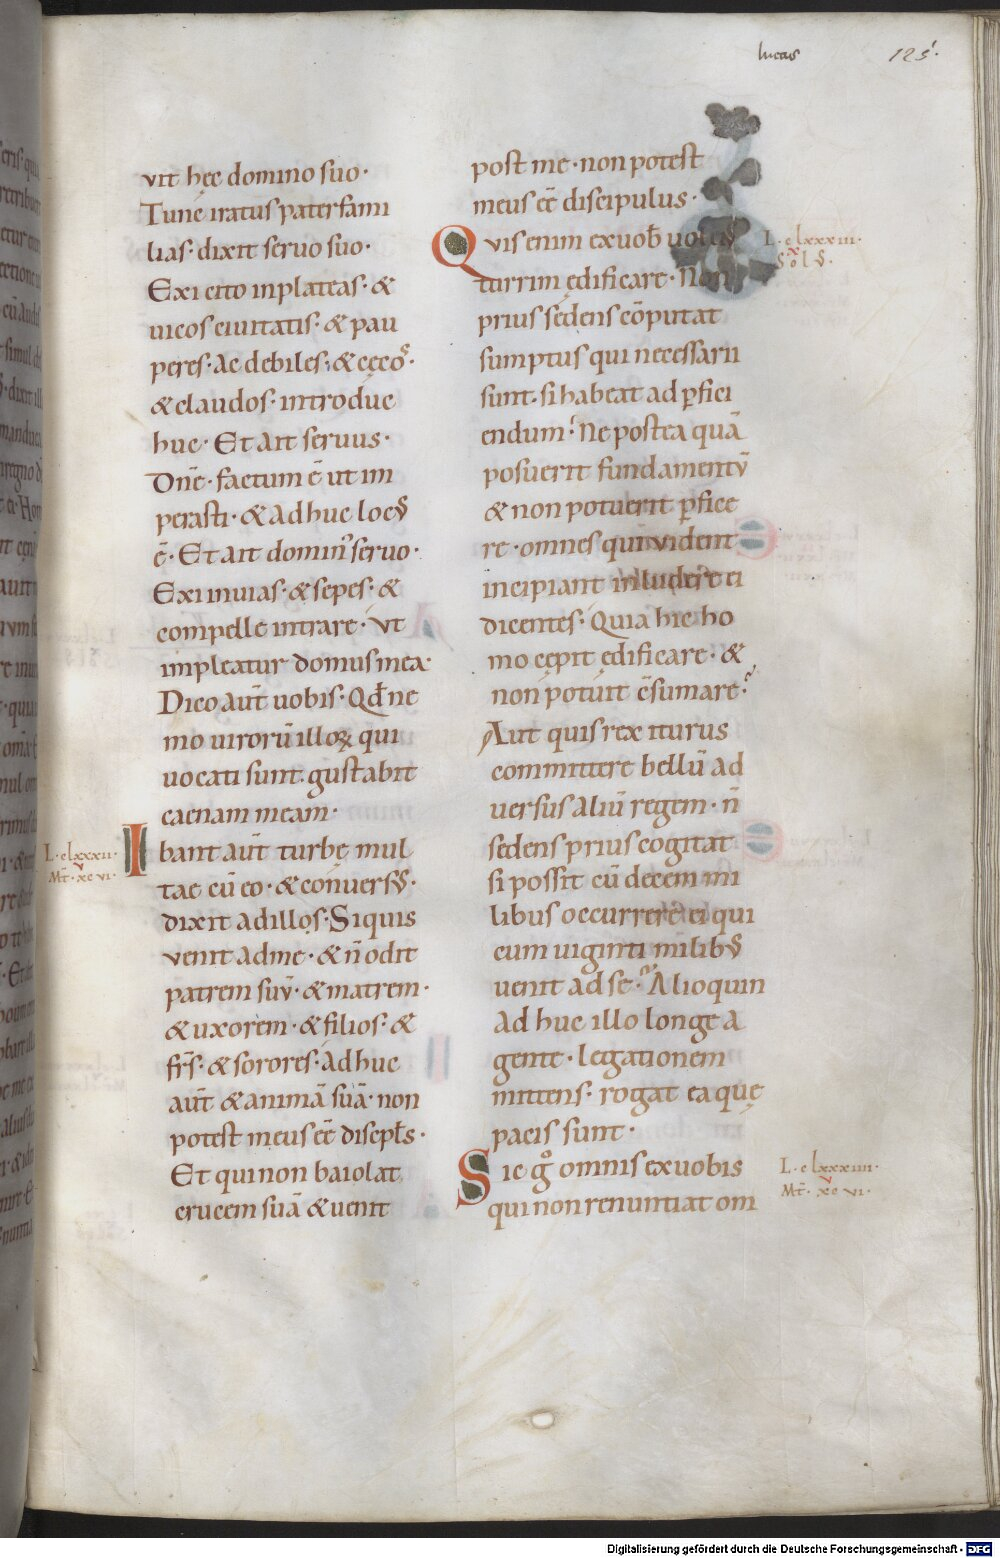 lucas 125.
vit hęc domino suo·
Tunc iratus pater fami
lias· dixit servo suo·
Exi cito in plateas· &
vicos civitatis· & pau
peres· Ac debiles· & cęcoˢ·
& claudos· introduc
huc· Et ait servus·
Dn̄e· factum ē ut im
perasti· & Adhuc locꝰ
ē· Et ait domin᾿ servo·
Exi in vias· & sepes· &
compelle intrare· vt
impleatur domus mea·
Dico aut̄ uobis· Qd̄ ne
mo virorū illoꝝ qui
vocati sunt· gustabit
caenam meam·
L·clxxxii·
Mt̄· xc vi·
Ibant aut̄ turbę mul
tae cū eo· & conversꝰ·
dixit ad illos· Si quis
venit ad me· & n̄ odit
patrem suv̄· & matrem·
& uxorem· & filios· &
fr̄s· & sorores· Adhuc
aut̄ & animā suā· non
potest meus eē discipl̄s·
Et qui non baiolat
crucem suā & venit
post me· non potest
meus eē discipulus·
Quis enim ex uob̄
L·clxxxiii·
turrim ędificare· Non
prius sedens cō̄putat
sumptus qui necessarii
sunt· si habeat ad ꝑfici
endum· Ne postea quā
posuerit fundamentv̄
& non potuerit ꝑfice
re· omnes qui vident
incipiant inludere ei
dicentes· Quia hic ho
mo cępit ędificare· &
non potuit c̄sumare·
Aut quis rex iturus
committere bellū ad
versus aliū regem· n̄
sedens prius cogitat
si possit cū decem mi
libus occurrere ei qui
cum uiginti milibꝰ
uenit ad se· Alioquin
Adhuc illo longe a
gente· legationem
mittens· rogat ea quę
pacis sunt·
Sic gͦ omnis ex uobis
L·clxxxiiii·
Mt̄· xc vi·
qui non renuntiat om
Digitalisierung gefördert durch die Deutsche Forschungsgemeinschaft - DFG